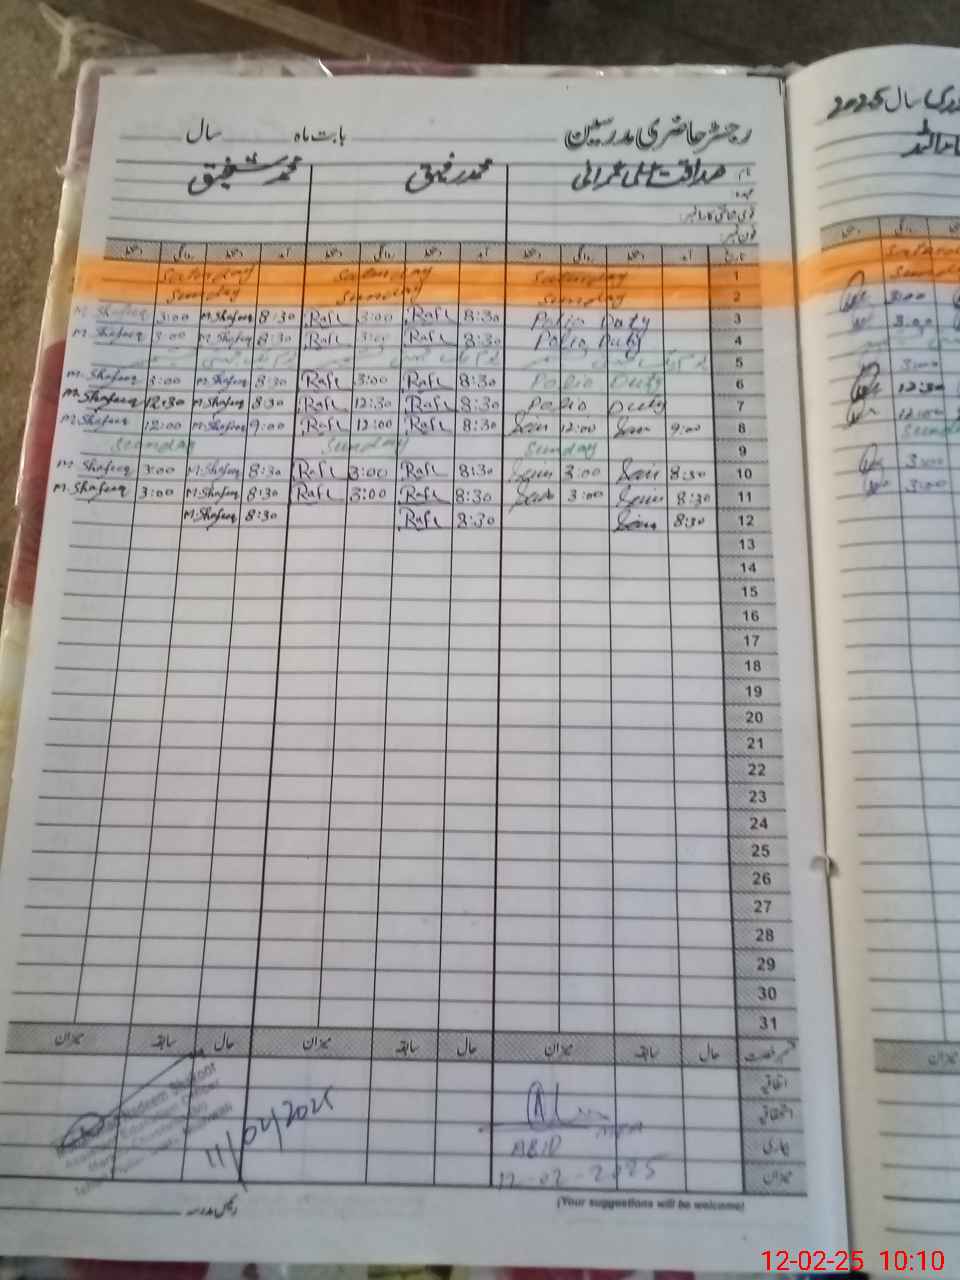 رجسٹر حاضری مدرسین بابت ماہ سال
نام صداقت علی عمرانی محمد رفیق محمد شفیق
عہدہ
قومی شناختی کارڈ نمبر:
فون نمبر:
تاریخ آمد دستخط روانگی دستخط آمد دستخط روانگی دستخط آمد دستخط روانگی دستخط
1 Saturday Saturday Saturday
2 Sunday Sunday Sunday
3 Polio Duty 8:30 Rafi 3:00 Rafi 8:30 M.Shafeeq 3:00 M.Shafeeq
4 Polio Duty 8:30 Rafi 3:00 Rafi 8:30 M.Shafeeq 3:00 M.Shafeeq
5
6 Polio Duty 8:30 Rafi 3:00 Rafi 8:30 M.Shafeeq 3:00 M.Shafeeq
7 Polio Duty 8:30 Rafi 12:30 Rafi 8:30 M.Shafeeq 12:30 M.Shafeeq
8 9:00 12:00 8:30 Rafi 12:00 Rafi 9:00 M.Shafeeq 12:00 M.Shafeeq
9 Sunday Sunday Sunday
10 8:30 3:00 8:30 Rafi 3:00 Rafi 8:30 M.Shafeeq 3:00 M.Shafeeq
11 8:30 3:00 8:30 Rafi 3:00 Rafi 8:30 M.Shafeeq 3:00 M.Shafeeq
12 8:30 8:30 Rafi 8:30 M.Shafeeq
13
14
15
16
17
18
19
20
21
22
23
24
25
26
27
28
29
30
31
حال سابقہ میزان حال سابقہ میزان حال سابقہ میزان
اتفاقی
استحقاقی
بیماری
میزان
ABID
12-02-2025
11/02/2025
رئیس مدرسہ
(Your suggestions will be welcome)
سال 2025
Saturday
Sunday
3:00
3:00
3:00
12:30
12:00
Sunday
3:00
3:00
میزان
12-02-25 10:10